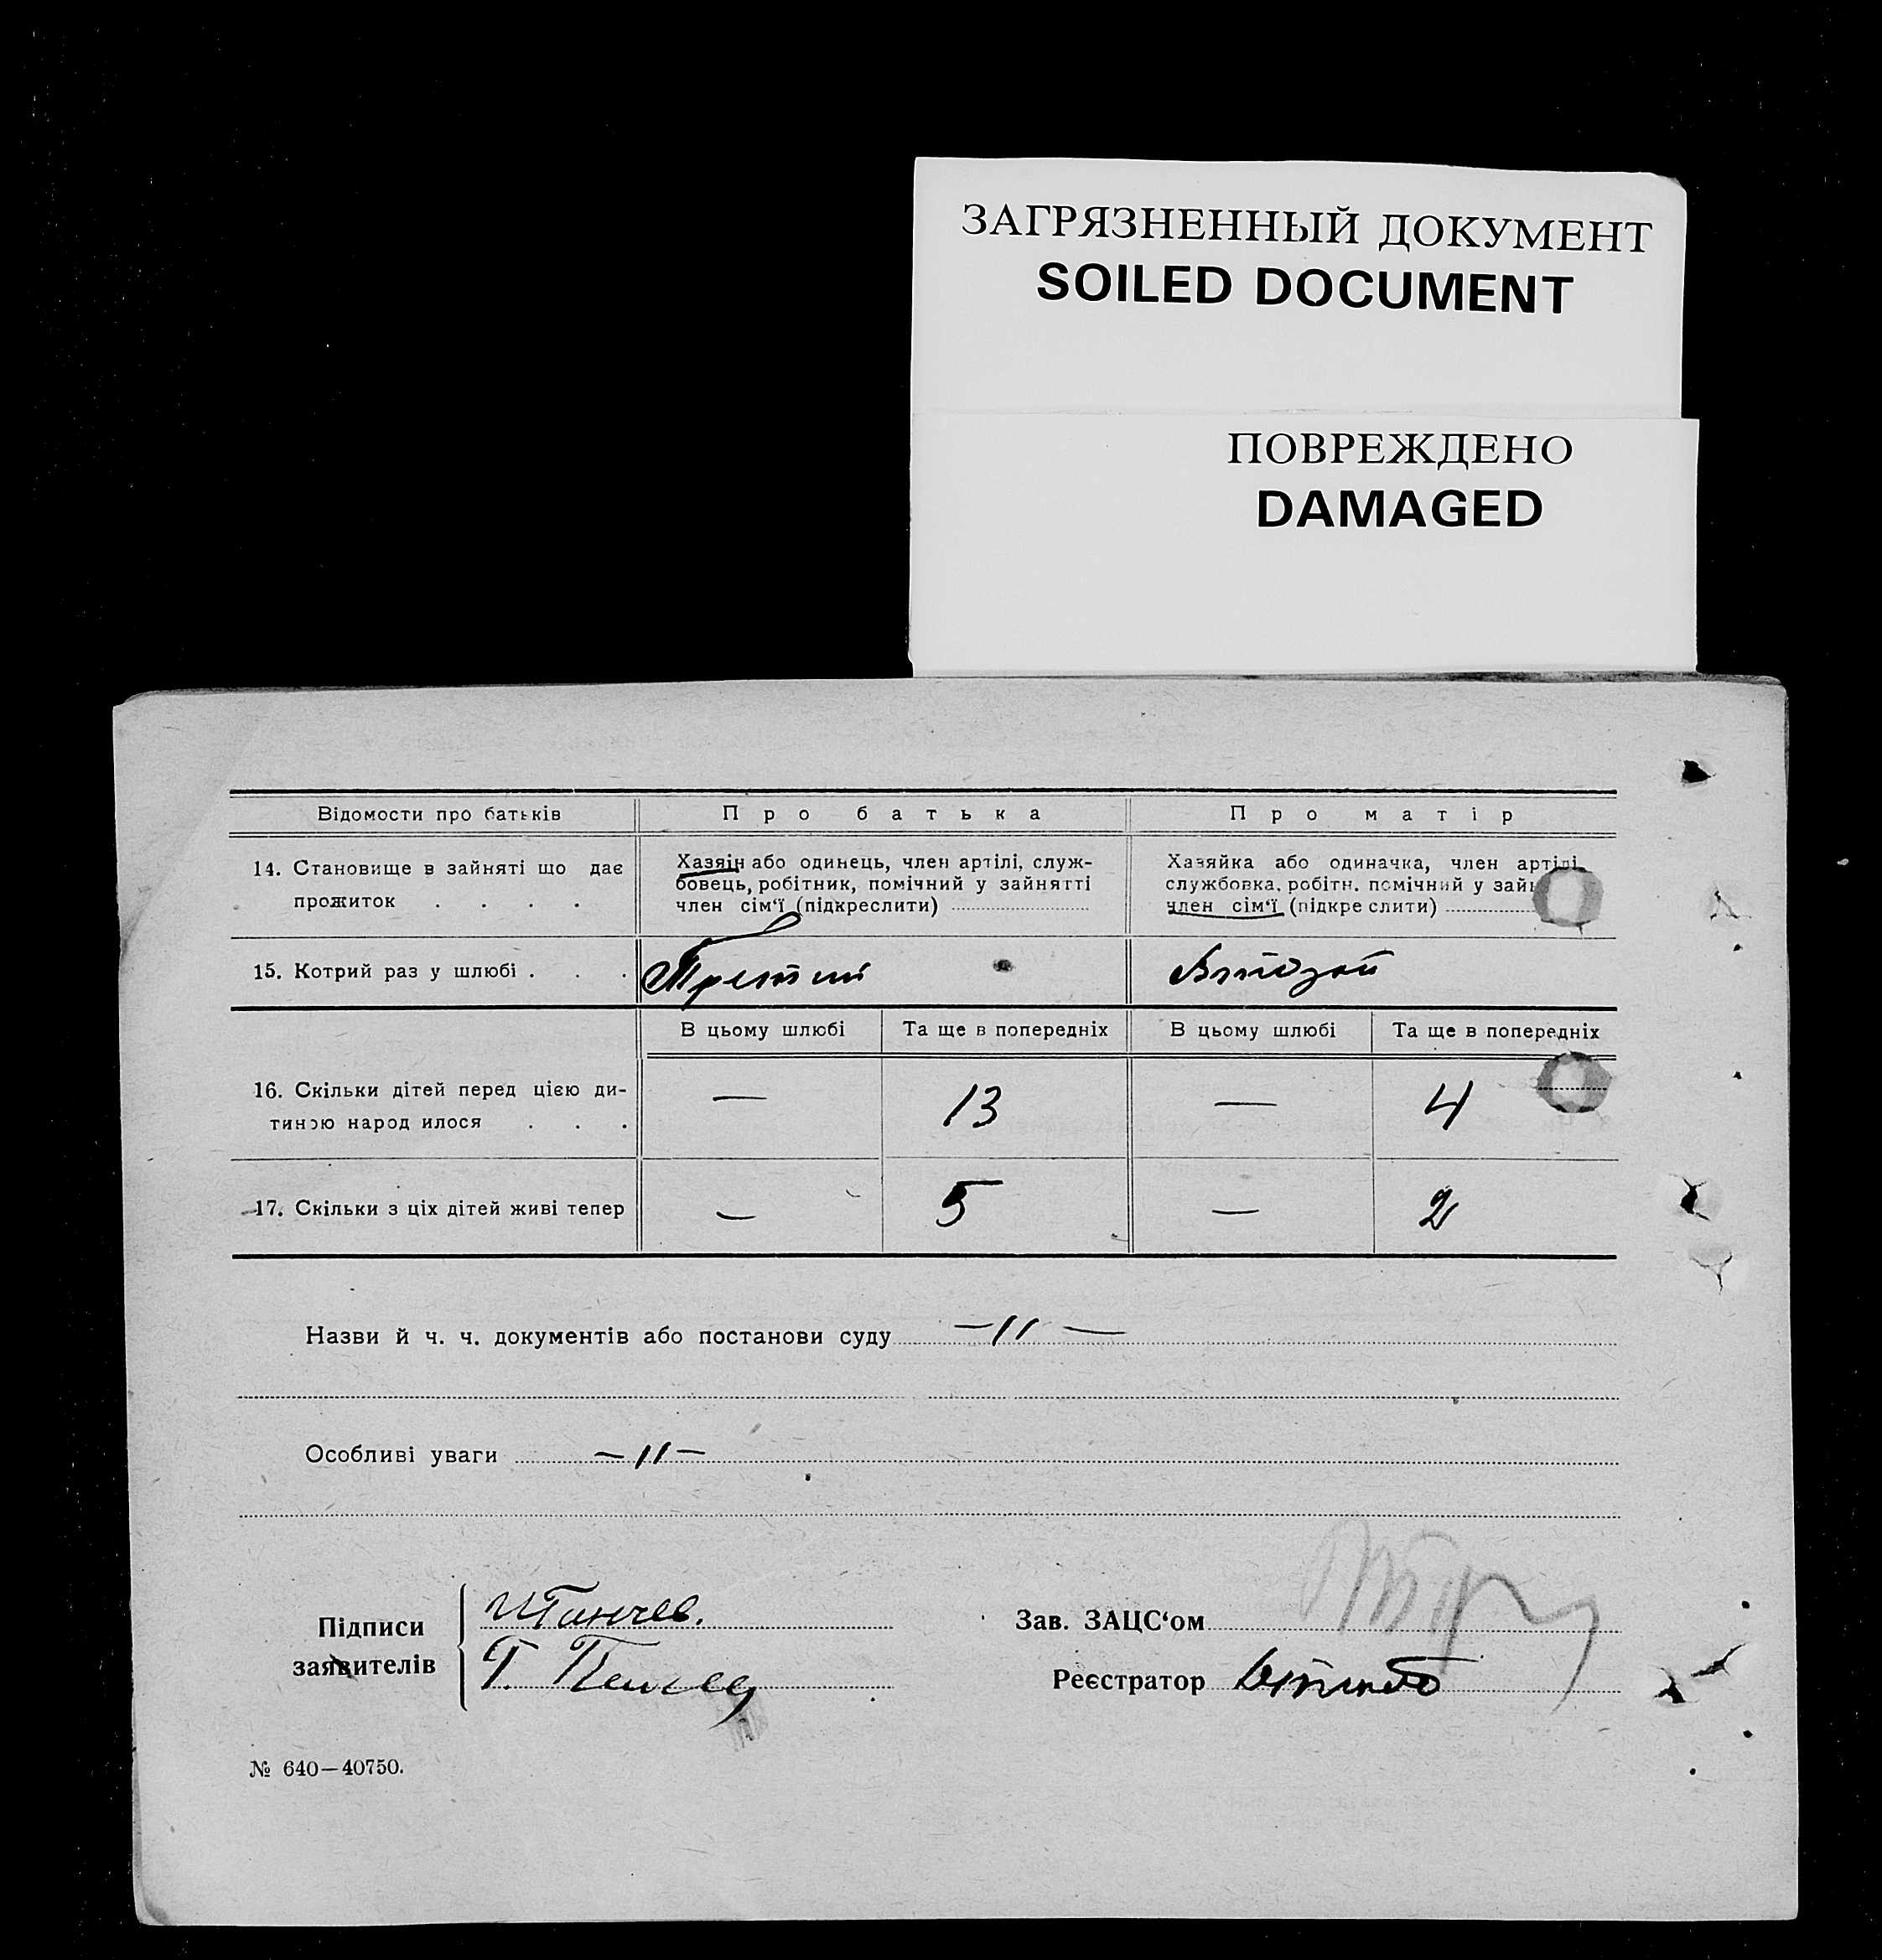 ЗАГРЯЗНЕННЫЙ ДОКУМЕНТ
SOILED DOCUMENT
ПОВРЕЖДЕНО
DAMAGED
Відомости про батьків
Про батька
Про матір
14. Становище в зайняті що дає
прожиток . . . .
Хазяін або одинець, член артілі, служ-
бовець, робітник, помічний у зайнятті
член сім‘ї (підкреслити)
Хазяйка або одиначка, член артілі
службовка, робітн. помічний у зайн
член сім‘ї (підкре слити)
15. Котрий раз у шлюбі . . .
Третий
В цьому шлюбі
Та ще в попередніх
В цьому шлюбі
Та ще в попередніх
16. Скільки дітей перед цією ди-
тиною народ илося . . .
—
13
—
4
17. Скільки з ціх дітей живі тепер
—
5
—
2
Назви й ч. ч. документів або постанови суду —〃—
Особливі уваги —〃—
Підписи
заявителів
Зав. ЗАЦС‘ом
Реєстратор
№ 640—40750.